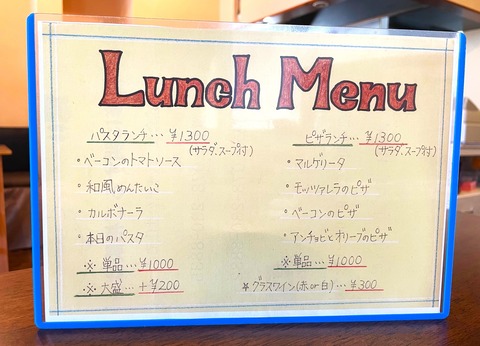 Lunch Menu
パスタランチ… ¥1300
(サラダ、スープ付)
・ベーコンのトマトソース
・和風めんたいこ
・カルボナーラ
・本日のパスタ
※単品… ¥1000
※大盛… +¥200
ピザランチ… ¥1300
(サラダ、スープ付)
・マルゲリータ
・モッツァレラのピザ
・ベーコンのピザ
・アンチョビとオリーブのピザ
※単品… ¥1000
☆グラスワイン(赤or白)… ¥300